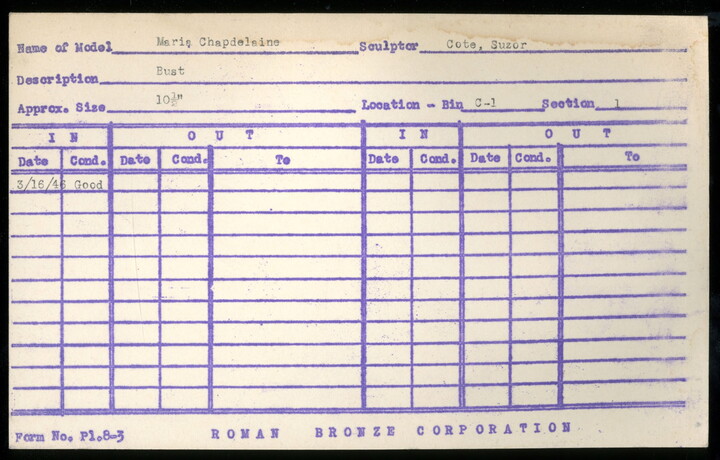 Name of Model Maria Chapdelaine Sculptor Cote, Suzor
Description Bust
Approx. Size 10½" Location - Bin C-1 Section 1
IN OUT IN OUT
Date Cond. Date Cond. To Date Cond. Date Cond. To
3/16/46 Good
Form No. Pl.8-3 ROMAN BRONZE CORPORATION